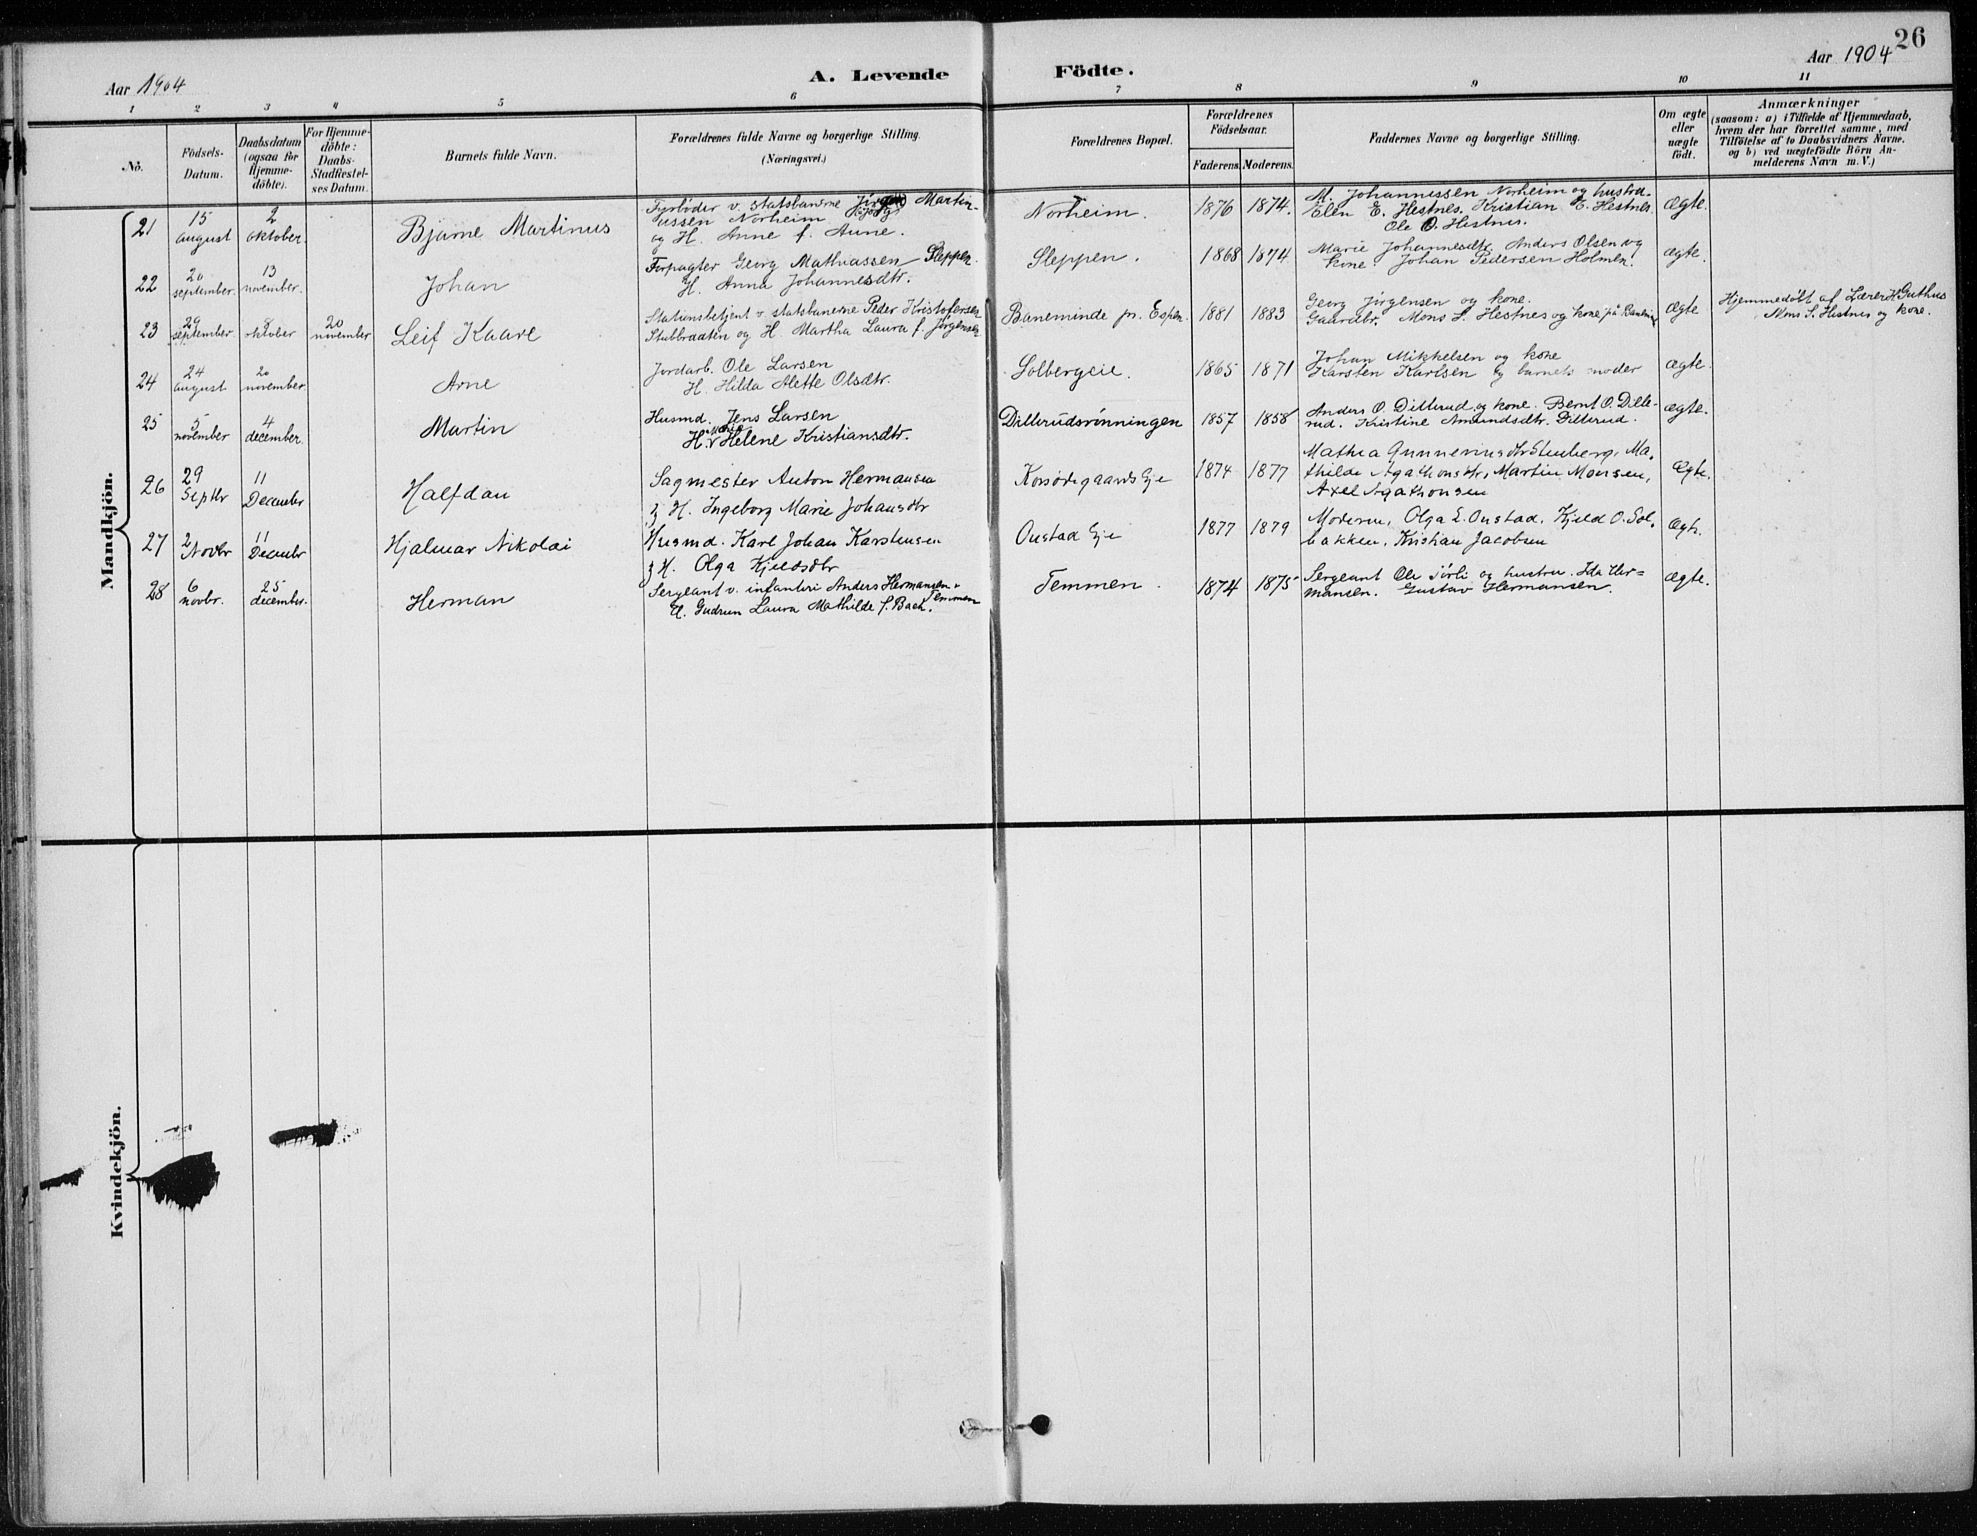 26
Aar 1904
A. Levende Födte.
Aar 1904
1 2 3 4 5 6 7 8 9 10 11
No.
Födsels-
Datum.
Daabsdatum
(ogsaa for
Hjemme-
döbte).
For Hjemme-
döbte:
Daabs-
Stadfæstel-
ses Datum.
Barnets fulde Navn.
Forældrenes fulde Navne og borgerlige Stilling.
(Næringsvei.)
Forældrenes Bopæl.
Forældrenes
Födselsaar.
Faderens. Moderens.
Faddernes Navne og borgerlige Stilling.
Om ægte
eller
uægte
födt.
Anmærkninger
(saasom: a) i Tilfælde af Hjemmedaab,
hvem der har forrettet samme, med
Tilföielse af to Daabsvidners Navne.
og b) ved uægtefödte Börn An-
melderens Navn m. V.)
Mandkjön.
21
15
august
2
oktober.
Bjarne Martinus
Fyrbøder v. statsbanerne Martin-
iussen Norheim
og H. Anne f. Aune.
Norheim.
1876
1874.
M. Johannessen Norheim og hustru
Elen E. Hestnes. Kristian E. Hestnes.
Ole O. Hestnes.
Ægte.
22
20
september.
13
november.
Johan
Forpagter Georg Mathiassen Sleppen.
H. Anna Johannesdtr.
Sleppen.
1868
1874
Marie Johannesdtr. Anders Olsen og
kone. Johan Pedersen Holmen.
ægte.
23
29
september
8
oktober
20
november
Leif Kaare
Stationsbetjent v statsbanerne Peder Kristofersen
Stubbraaten og H. Martha Laura f. Jörgensen
Baneminde pr. Espen.
1881
1883
Georg Jörgensen og kone.
Gaardbr. Mons S. Hestnes og kone på
Ægte
Hjemmedöbt af Lærer H. Guthus
Mons S. Hestnes og kone.
24
24
august
20
november
Arne
Jordarb. Ole Larsen
H. Hilda Alette Olsdtr.
Solbergeie.
1865
1871
Johan Mikkelsen og kone
Karsten Karlsen og barnets moder
Ægte.
25
5
november
4
december.
Martin
Husmd. Jens Larsen
H. Helene Kristiansdtr.
Dillerudsrönningen
1857
1858
Anders O. Dillerud og kone. Bernt O. Dille-
rud. Kristine Amundsdtr. Dillerud.
ægte.
26
29
Septbr
11
Decembr
Halfdan
Sagmester Anton Hermansen
& H. Ingeborg Marie Johansdtr
Korsödegaards Eje
1874
1877
Mathea Gunneriusdtr Stenberg, Ma-
thilde Agathonsdtr, Martin Monsen,
Axel Agathonsen
Ægte.
27
2
Novbr
11
Decembr
Hjalmar Nikolai
Husmd. Karl Johan Karstensen
& H. Olga Kjeldsdtr
Onstad Eje
1877
1879
Moderen, Olga E. Onstad, Kjeld O. Sol-
bakken, Kristian Jacobsen
Ægte.
28
6
novbr.
25
december.
Herman
Sergeant v. infanteri Anders Hermansen
Temmen
H. Gudrun Laura Mathilde f. Bach.
Temmen
1874
1875
Sergeant Ole Törli og hustru. Ida Her-
mansen. Gustav Hermansen.
ægte.
Kvindekjön.